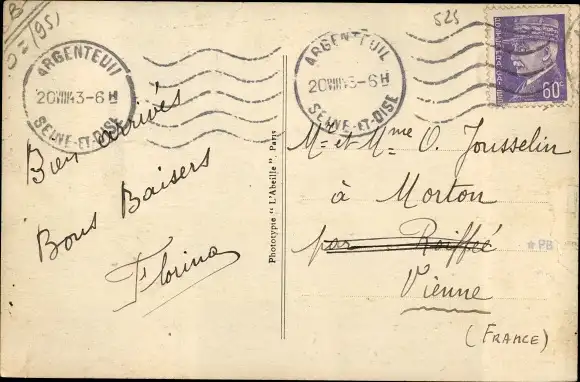 B
0 n (95)
525
ARGENTEUIL
20 VIII 43-6H
SEINE-ET-OISE
ARGENTEUIL
20 VIII 43-6H
SEINE-ET-OISE
60c
Bien arrivés
Bons Baisers
Florina
Phototypie "L'Abeille", Paris
Mr et Mme O. Jousselin
à Morton
par Roiffé
Vienne
(FRANCE)
*PB